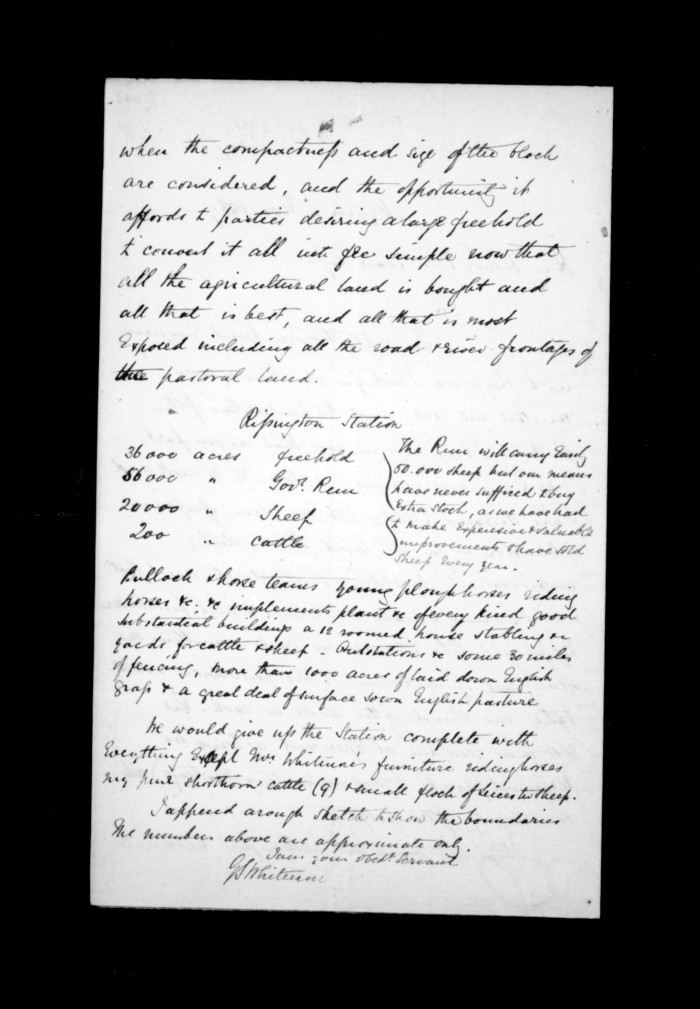 when the compactness and size of the block
are considered, and the opportunity it
affords to parties desiring a large freehold
to convert it all into fee simple now that
all the agricultural land is bought and
all that is best, and all that is most
Exposed including all the road & river frontages of
the pastoral land.
Rissington Station
36000 acres freehold
56000 " Govt. Run
20000 " Sheep
200 " Cattle
The Run will carry Easily
50.000 sheep but our means
have never sufficed to buy
Extra Stock, as we have had
to make Expensive & valuable
improvements & have sold
Sheep Every year.
Bullock & horse teams young plough horses riding
horses &c. &c implements plant &c of every kind good
substantial buildings a 12 roomed house Stabling &c
yards for cattle & sheep - Outstations &c some 30 miles
of fencing, more than 1000 acres of laid down English
grass & a great deal of surface sown English pasture
We would give up the Station complete with
Everything Except Mrs Whitmore's furniture riding horses
my pure shorthorn cattle (9) & small flock of Leicester sheep.
I append a rough Sketch to show the boundaries
The numbers above are approximate only.
I am your obedt Servant
GS Whitmore